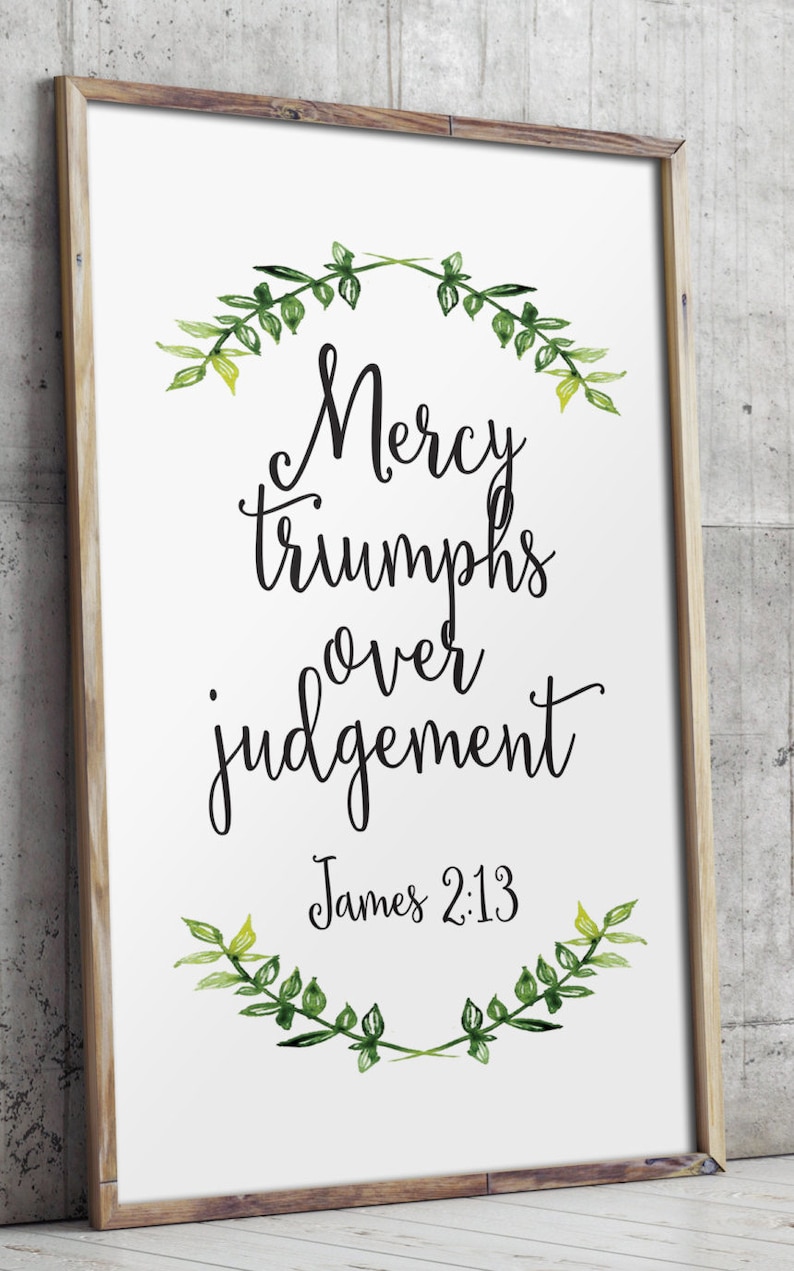 Mercy
triumphs
over
judgement
James 2:13